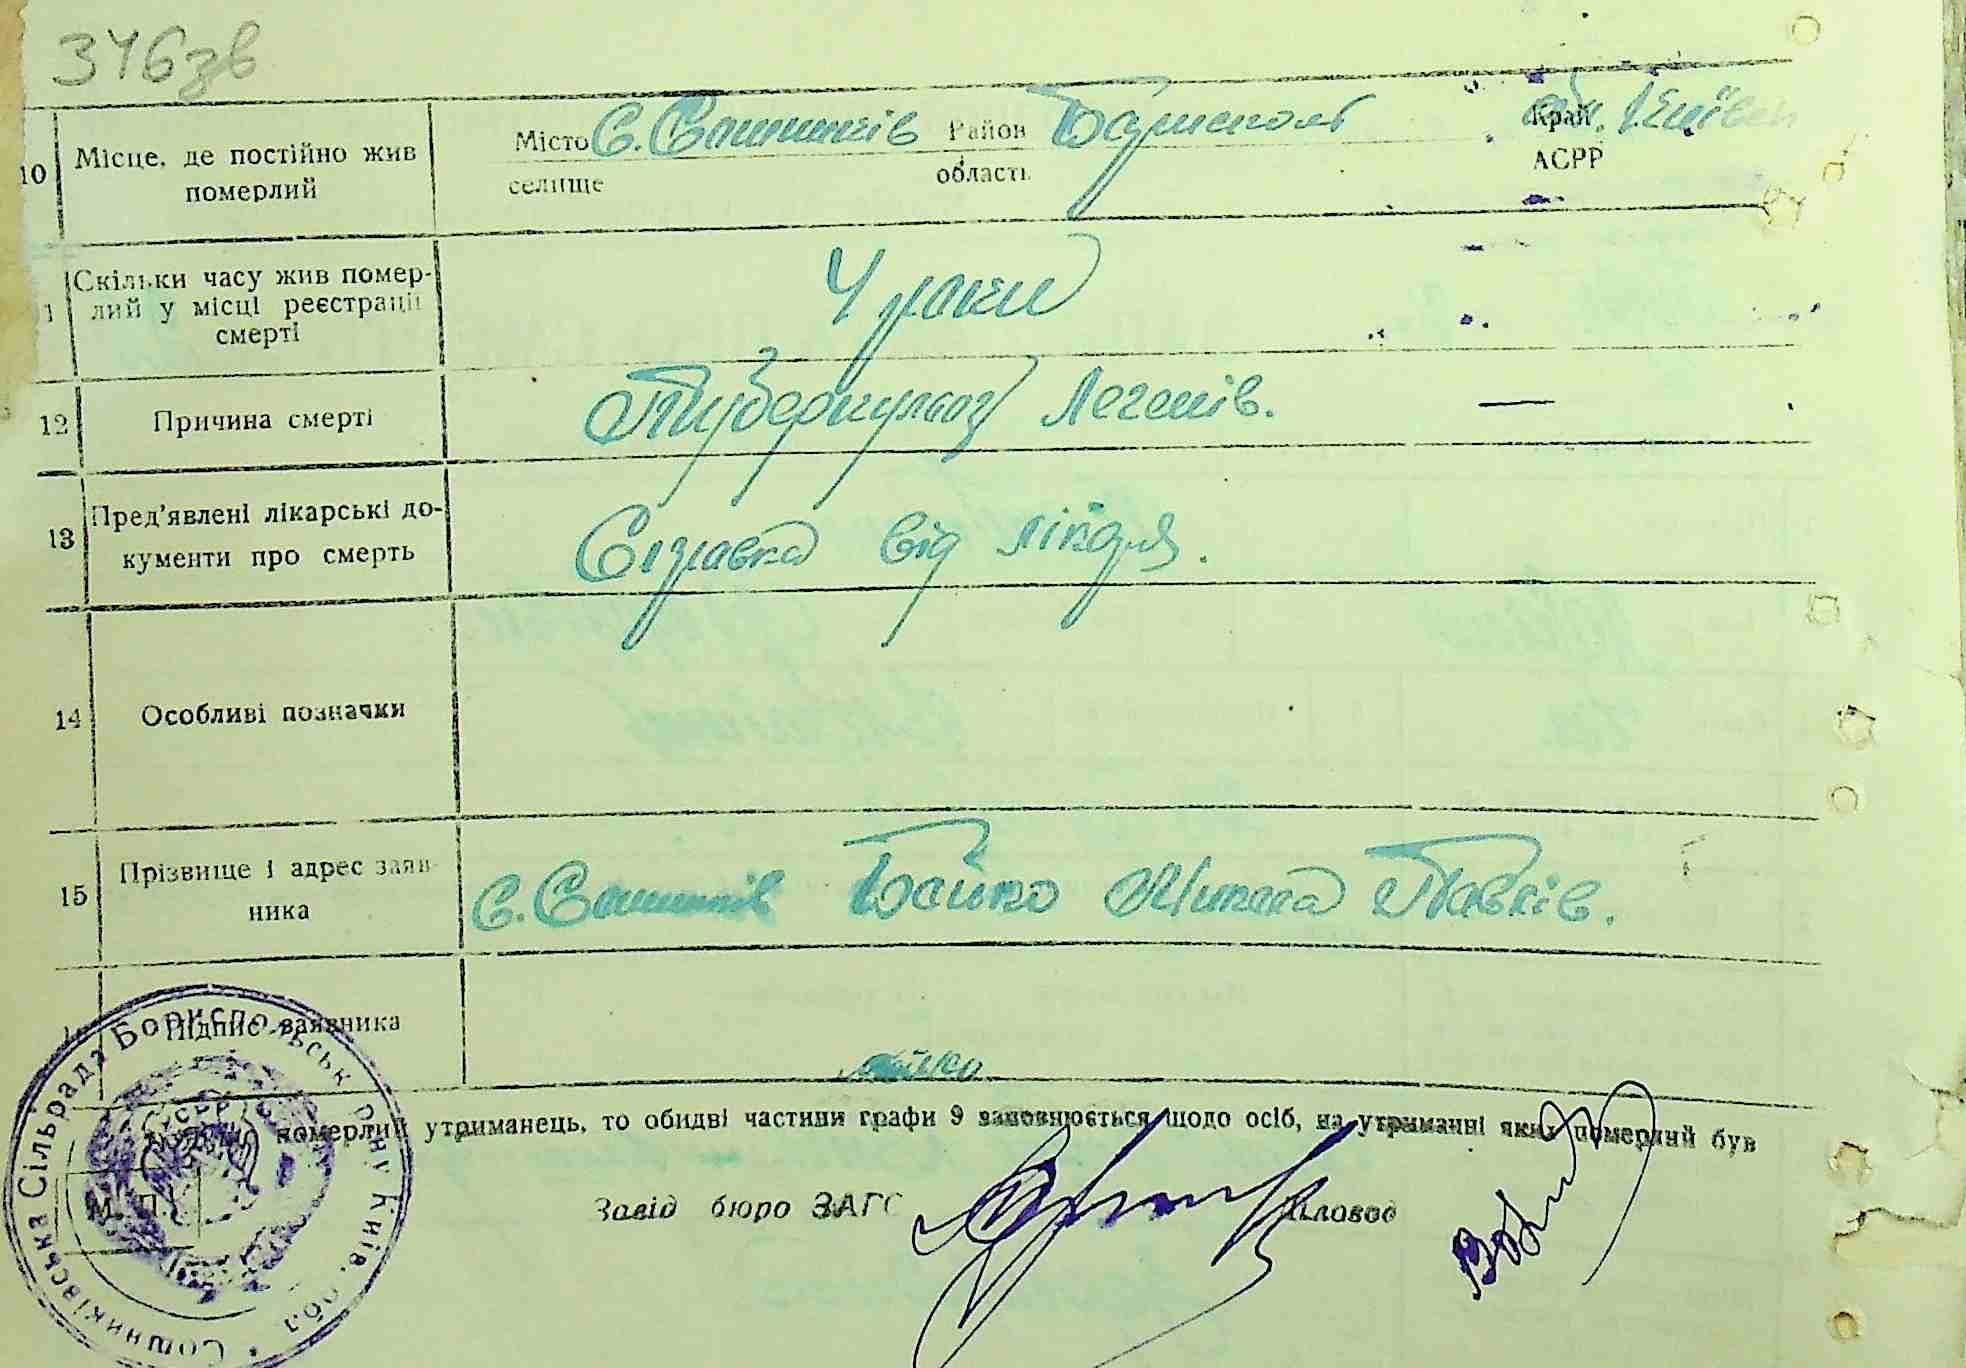 346зв
10 Місце, де постійно жив померлий Місто селище С. Сошників Район область Бориспол Край АСРР обл. Київск
Скільки часу жив померлий у місці реєстрації смерті 4 роки
12 Причина смерті Туберкульоз легенів. —
13 Пред'явлені лікарські документи про смерть Справка від лікаря.
14 Особливі позначки
15 Прізвище і адрес заявника С. Сошників Бойко Микола Павків.
Підпис заявника Бойко
померлий утриманець, то обидві частини графи 9 заповнюється щодо осіб, на утриманні яких померлий був
М. П. Завід бюро ЗАГС Діловод
Сошниківська Сільрада Бориспольськ р-ну Київ. обл
УСРР